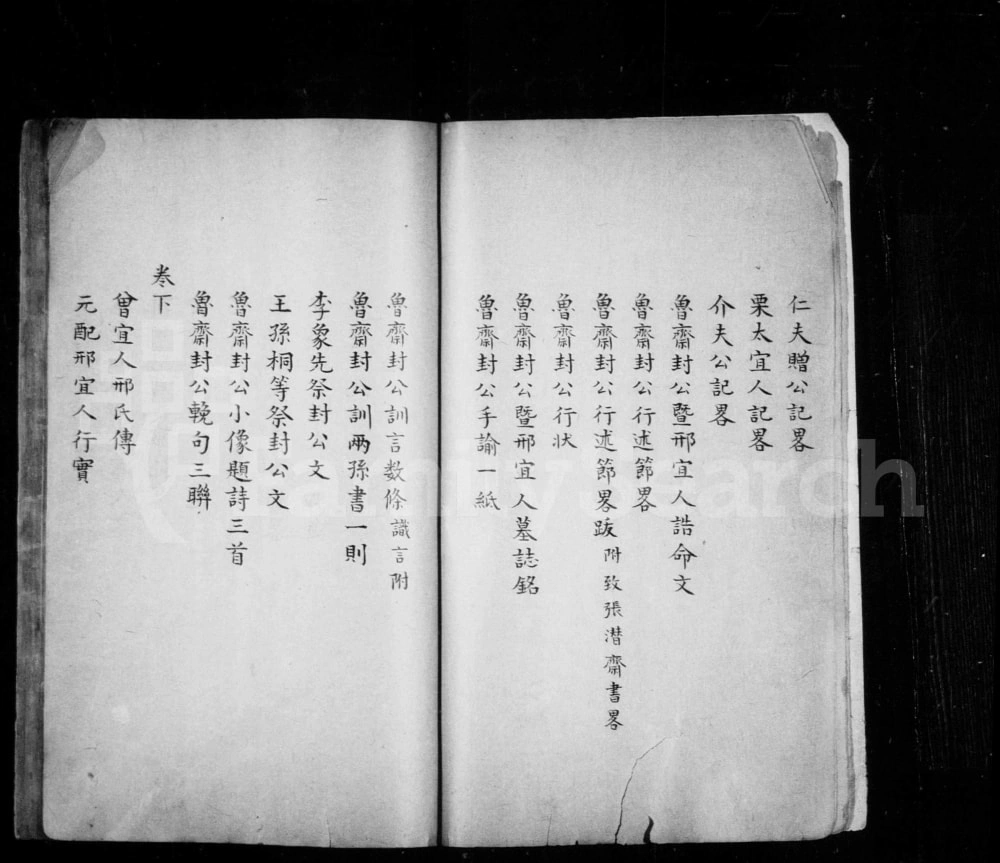 仁夫贈公記畧
栗太宜人記畧
介夫公記畧
魯齋封公暨邢宜人誥命文
魯齋封公行述節畧
魯齋封公行述節畧跋附致張潛齋書畧
魯齋封公行状
魯齋封公暨邢宜人墓誌銘
魯齋封公手諭一紙
魯齋封公訓言数條識言附
魯齋封公訓兩孫書一則
李象先祭封公文
王孫桐等祭封公文
魯齋封公小像題詩三首
魯齋封公輓句三聨
卷下
曾宜人邢氏傳
元配邢宜人行實
FamilySearch